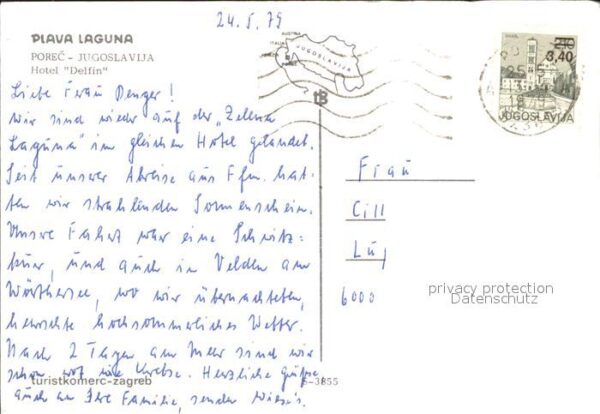 24.5.79
PLAVA LAGUNA
POREČ - JUGOSLAVIJA
Hotel "Delfin"
Liebe Frau Denger!
wir sind wieder auf der „Zelena
Laguna" im gleichen Hotel gelandet.
Seit unserer Abreise aus Ffm. hat-
ten wir strahlenden Sonnenschein.
Unsre Fahrt war eine Schwitz-
kur, und auch in Velden am
Wörthersee, wo wir übernachteten,
herrschte hochsommerliches Wetter.
Nach 2 Tagen am Meer sind wir
schon rot wie Krebse. Herzliche Grüße,
auch an Ihre Familie, senden
turistkomerc-zagreb
S-3855
AUSTRIA
ITALIA
JUGOSLAVIJA
2,10
3,40
JUGOSLAVIJA
Frau
Cill
6000
privacy protection
Datenschutz